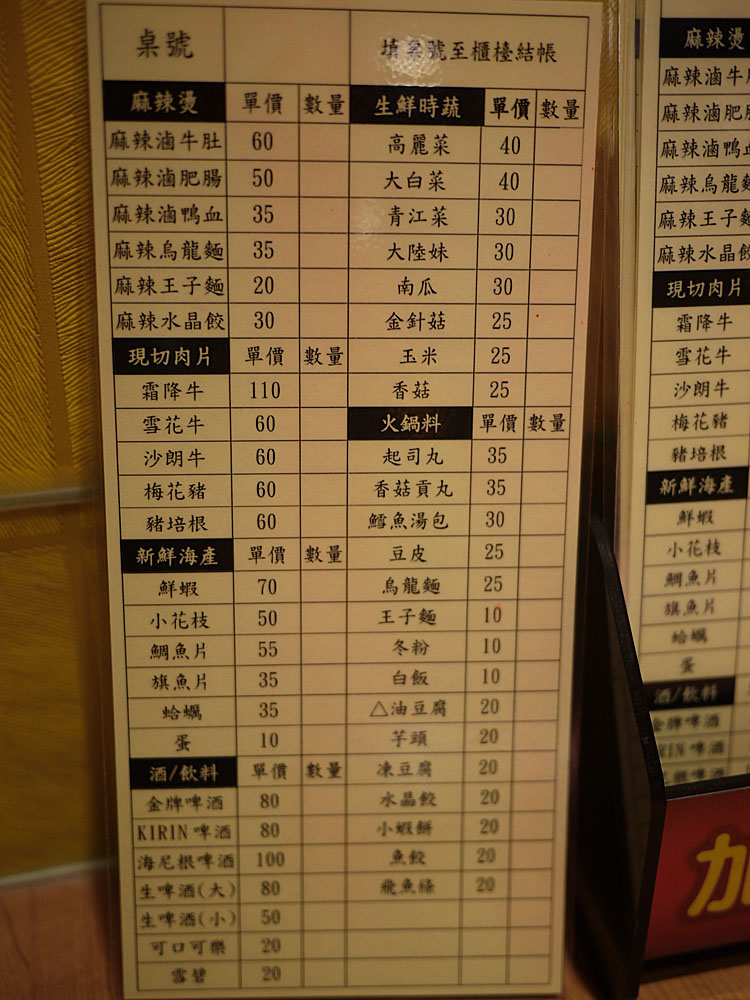 桌號 填桌號至櫃檯結帳
麻辣燙 單價 數量 生鮮時蔬 單價 數量
麻辣滷牛肚 60 高麗菜 40
麻辣滷肥腸 50 大白菜 40
麻辣滷鴨血 35 青江菜 30
麻辣烏龍麵 35 大陸妹 30
麻辣王子麵 20 南瓜 30
麻辣水晶餃 30 金針菇 25
現切肉片 單價 數量 玉米 25
霜降牛 110 香菇 25
雪花牛 60 火鍋料 單價 數量
沙朗牛 60 起司丸 35
梅花豬 60 香菇貢丸 35
豬培根 60 鱈魚湯包 30
新鮮海產 單價 數量 豆皮 25
鮮蝦 70 烏龍麵 25
小花枝 50 王子麵 10
鯛魚片 55 冬粉 10
旗魚片 35 白飯 10
蛤蠣 35 △油豆腐 20
蛋 10 芋頭 20
酒/飲料 單價 數量 凍豆腐 20
金牌啤酒 80 水晶餃 20
KIRIN 啤酒 80 小蝦餅 20
海尼根啤酒 100 魚餃 20
生啤酒(大) 80 飛魚條 20
生啤酒(小) 50
可口可樂 20
雪碧 20
麻辣燙
麻辣滷牛
麻辣滷肥
麻辣滷鴨血
麻辣烏龍麵
麻辣王子麵
麻辣水晶餃
現切肉片
霜降牛
雪花牛
沙朗牛
梅花豬
豬培根
新鮮海產
鮮蝦
小花枝
鯛魚片
旗魚片
蛤蠣
蛋
酒/飲料
金牌啤酒
啤酒
啤酒
加